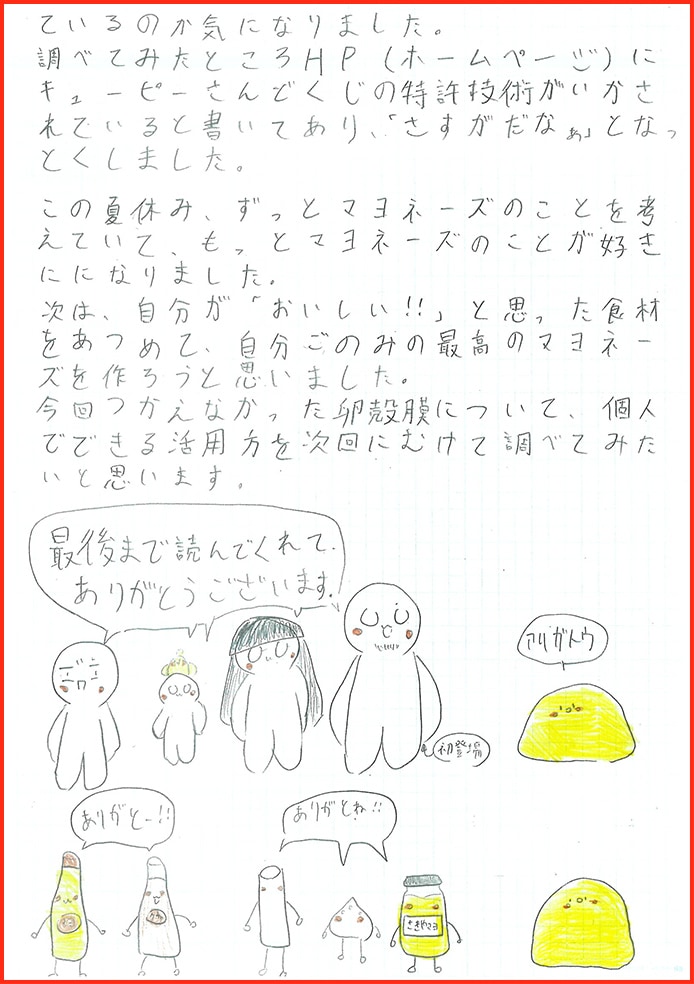 ているのか気になりました。
調べてみたところHP(ホームページ)に
キューピーさんどくじの特許技術がいかさ
れていると書いてあり、「さすがだなぁ」となっ
とくしました。
この夏休み、ずっとマヨネーズのことを考
えていて、もっとマヨネーズのことが好き
にになりました。
次は、自分が「おいしい!!」と思った食材
をあつめて、自分ごのみの最高のマヨネー
ズを作ろうと思いました。
今回つかえなかった卵殻膜について、個人
でできる活用方を次回にむけて調べてみた
いと思います。
最後まで読んでくれて、
ありがとうございます。
アリガトウ
初登場
ありがとー!!
ありがとね!!
さきやマヨ